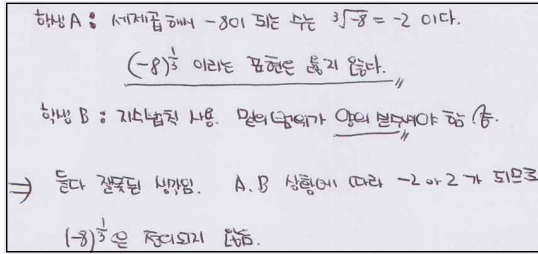 학생 A : 세제곱해서 -8이 되는 수는 ∛-8 = -2 이다.
(-8)^{1/3} 이라는 표현은 옳지 않다.
학생 B : 지수법칙 사용. 밑의 범위가 양의 실수여야 함
⇒ 둘다 잘못된 생각임. A.B 상황에 따라 -2 or 2 가 되므로
(-8)^{1/3}은 정의되지 않음.